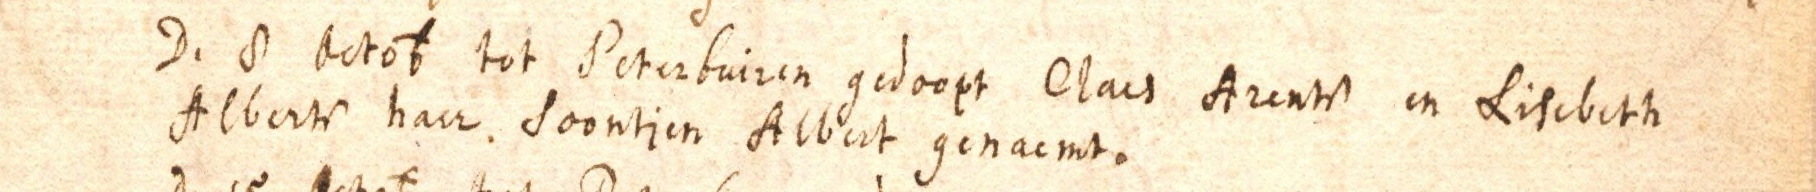 D. 8 octob tot Peterbuiren gedoopt Claes Arents en Lisebeth
Alberts haer. Soontjen Albert genaemt.
D. 15 octob tot